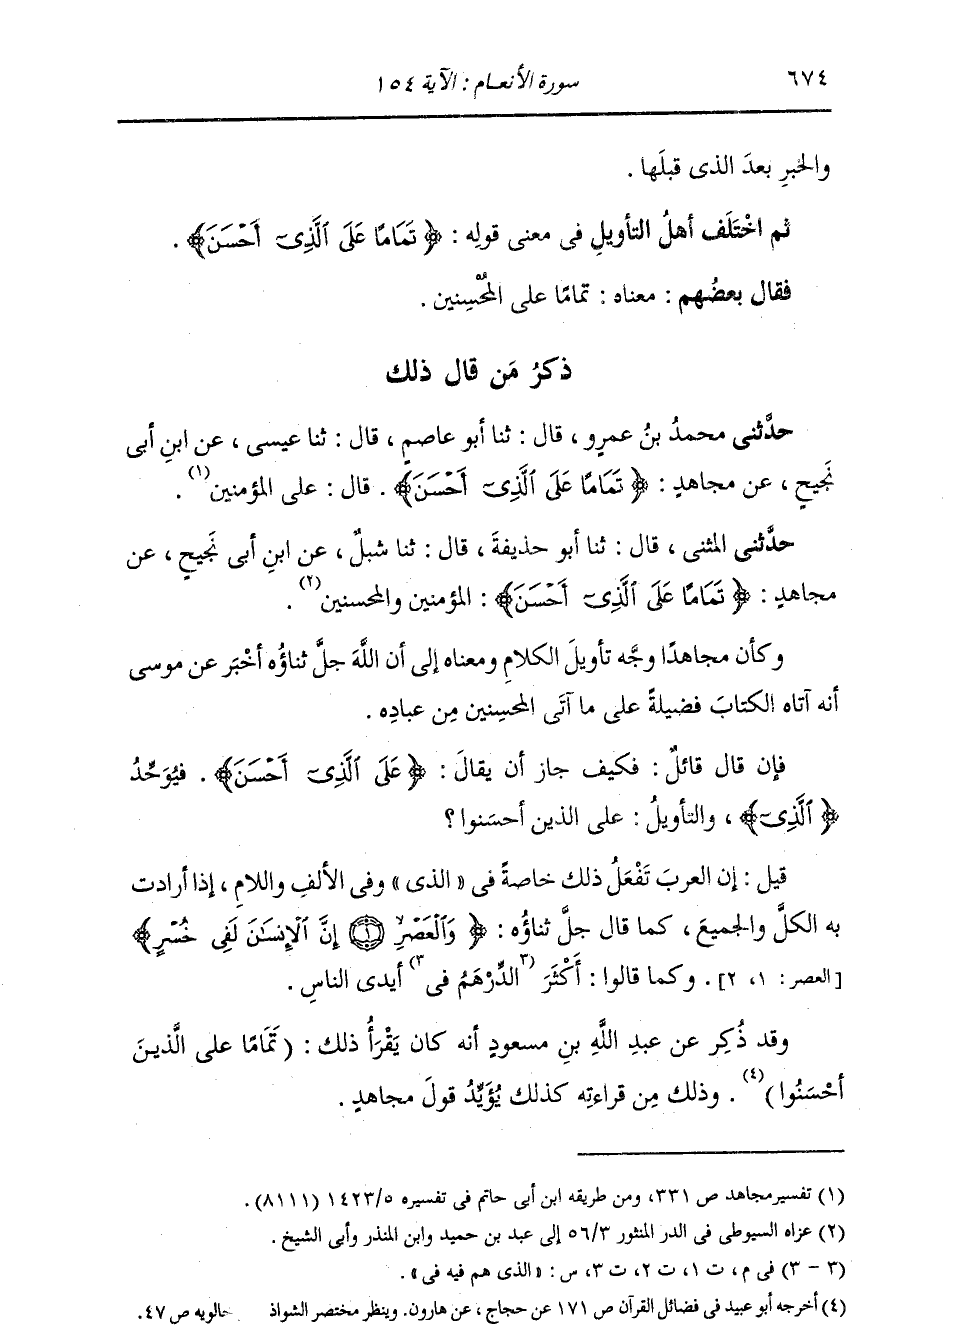 ٦٧٤
سورة الأنعام : الآية ١٥٤
والخبرِ بعدَ الذى قبلَها .
ثم اخْتَلَف أهلُ التأويلِ فى معنى قولِه : ﴿ تَمَامًا عَلَى ٱلَّذِىٓ أَحْسَنَ﴾ .
فقال بعضُهم : معناه : تمامًا على المُحْسِنين .
ذكرُ مَن قال ذلك
حدَّثنى محمدُ بنُ عمرٍو ، قال : ثنا أبو عاصمٍ ، قال : ثنا عيسى ، عن ابنِ أبى
نَجيحٍ ، عن مجاهدٍ : ﴿ تَمَامًا عَلَى ٱلَّذِىٓ أَحْسَنَ﴾ . قال : على المؤمنين(١) .
حدَّثنى المثنى ، قال : ثنا أبو حذيفةَ ، قال : ثنا شبلٌ ، عن ابنِ أبى نَجيحٍ ، عن
مجاهدٍ : ﴿ تَمَامًا عَلَى ٱلَّذِىٓ أَحْسَنَ﴾ : المؤمنين والمحسنين(٢) .
وكأن مجاهدًا وجَّه تأويلَ الكلامِ ومعناه إلى أن اللَّهَ جلَّ ثناؤُه أخْبَر عن موسى
أنه آتاه الكتابَ فضيلةً على ما آتَى المحسِنين مِن عبادِه .
فإن قال قائلٌ : فكيف جاز أن يقالَ : ﴿عَلَى ٱلَّذِىٓ أَحْسَنَ﴾ . فيُوَحِّدُ
﴿ ٱلَّذِىٓ﴾ ، والتأويلُ : على الذين أحسَنوا ؟
قيل : إن العربَ تَفْعَلُ ذلك خاصةً فى « الذى » وفى الألفِ واللامِ ، إذا أرادت
به الكلَّ والجميعَ ، كما قال جلَّ ثناؤُه : ﴿ وَٱلْعَصْرِ ۝١ إِنَّ ٱلْإِنسَٰنَ لَفِى خُسْرٍ﴾
[العصر : ١، ٢] . وكما قالوا : أَكْثَرَ (٣الدِّرْهَمُ فى٣) أيدى الناسِ .
وقد ذُكِر عن عبدِ اللَّهِ بنِ مسعودٍ أنه كان يَقْرَأُ ذلك : (تَمَامًا على الَّذينَ
أحْسَنُوا)(٤) . وذلك مِن قراءتِه كذلك يُؤَيِّدُ قولَ مجاهدٍ .
(١) تفسيرمجاهد ص ٣٣١، ومن طريقه ابن أبى حاتم فى تفسيره ١٤٢٣/٥ (٨١١١) .
(٢) عزاه السيوطى فى الدر المنثور ٥٦/٣ إلى عبد بن حميد وابن المنذر وأبى الشيخ .
(٣ - ٣) فى م ، ت ١، ت ٢، ت ٣، س : «الذى هم فيه فى» .
(٤) أخرجه أبو عبيد فى فضائل القرآن ص ١٧١ عن حجاج ، عن هارون. وينظر مختصر الشواذ حالويه ص ٤٧.